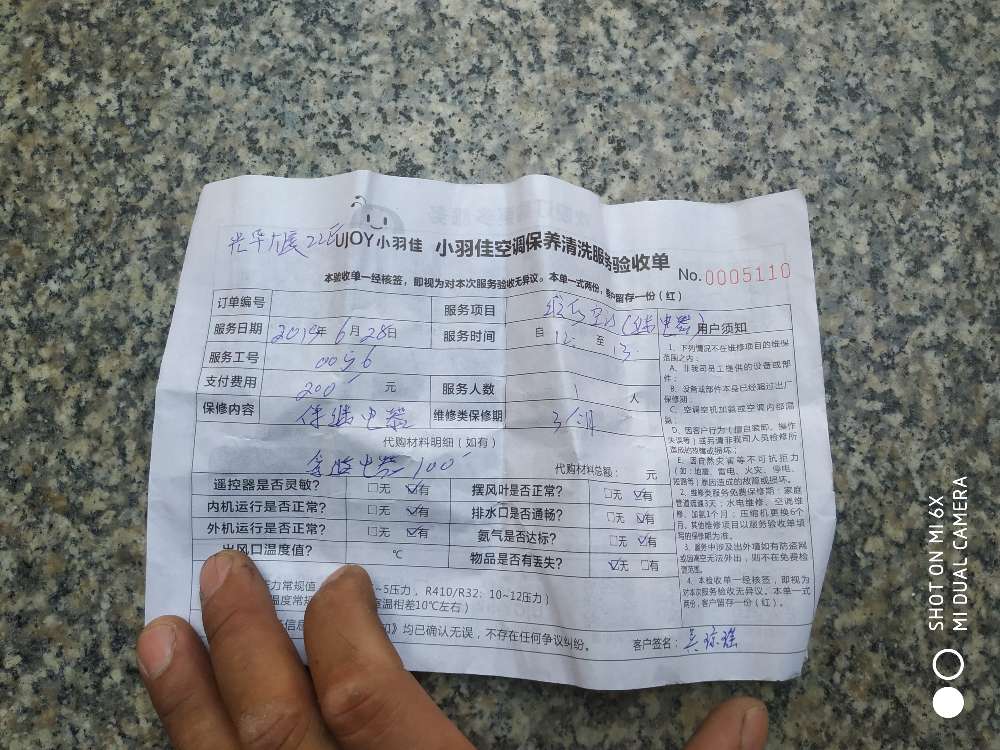 光华大厦22E
UJOY小羽佳 小羽佳空调保养清洗服务验收单 No.0005110
本验收单一经核签，即视为对本次服务验收无异议。本单一式两份，客户留存一份（红）
订单编号 服务项目 (继电器)
服务日期 2019年6月28日 服务时间 自 12: 至 13:
服务工号
支付费用 200 元 服务人数 1 人
保修内容 保继电器 维修类保修期 3个月
代购材料明细（如有）
继电器100 代购材料总额： 元
遥控器是否灵敏？ □无 ☑有 摆风叶是否正常？ □无 ☑有
内机运行是否正常？ □无 ☑有 排水口是否通畅？ □无 ☑有
外机运行是否正常？ □无 ☑有 氨气是否达标？ □无 ☑有
出风口温度值？ ℃ 物品是否有丢失？ ☑无 □有
力常规值 ~5压力，R410/R32：10~12压力）
温度常规 室温相差10℃左右）
信息 》均已确认无误，不存在任何争议纠纷。 客户签名：吴琼瑶
用户须知
1、下列情况不在维修项目的维保
范围之内：
A、非我司员工提供的设备或部
件；
B、设备或部件本身已经超过出厂
保修期；
C、空调空机加氨或空调内部漏
氨；
D、因客户行为（擅自装卸、操作
失误等）或另请非我司人员检修所
造成的故障或损坏；
E、因自然灾害等不可抗拒力
（如：地震、雷电、火灾、停电、
短路等）原因造成的故障或损坏。
2、维修类服务免费保修期：家庭
管道疏通3天；水电维修、空调维
修、加氨1个月；压缩机更换6个
月，其他维修项目以服务验收单填
写的保修期为准。
3、服务中涉及出外墙如有防盗网
或因高空无法外出，则不在免费检
范围。
4、本验收单一经核签，即视为
对本次服务验收无异议。本单一式
两份，客户留存一份（红）。
SHOT ON MI 6X
MI DUAL CAMERA